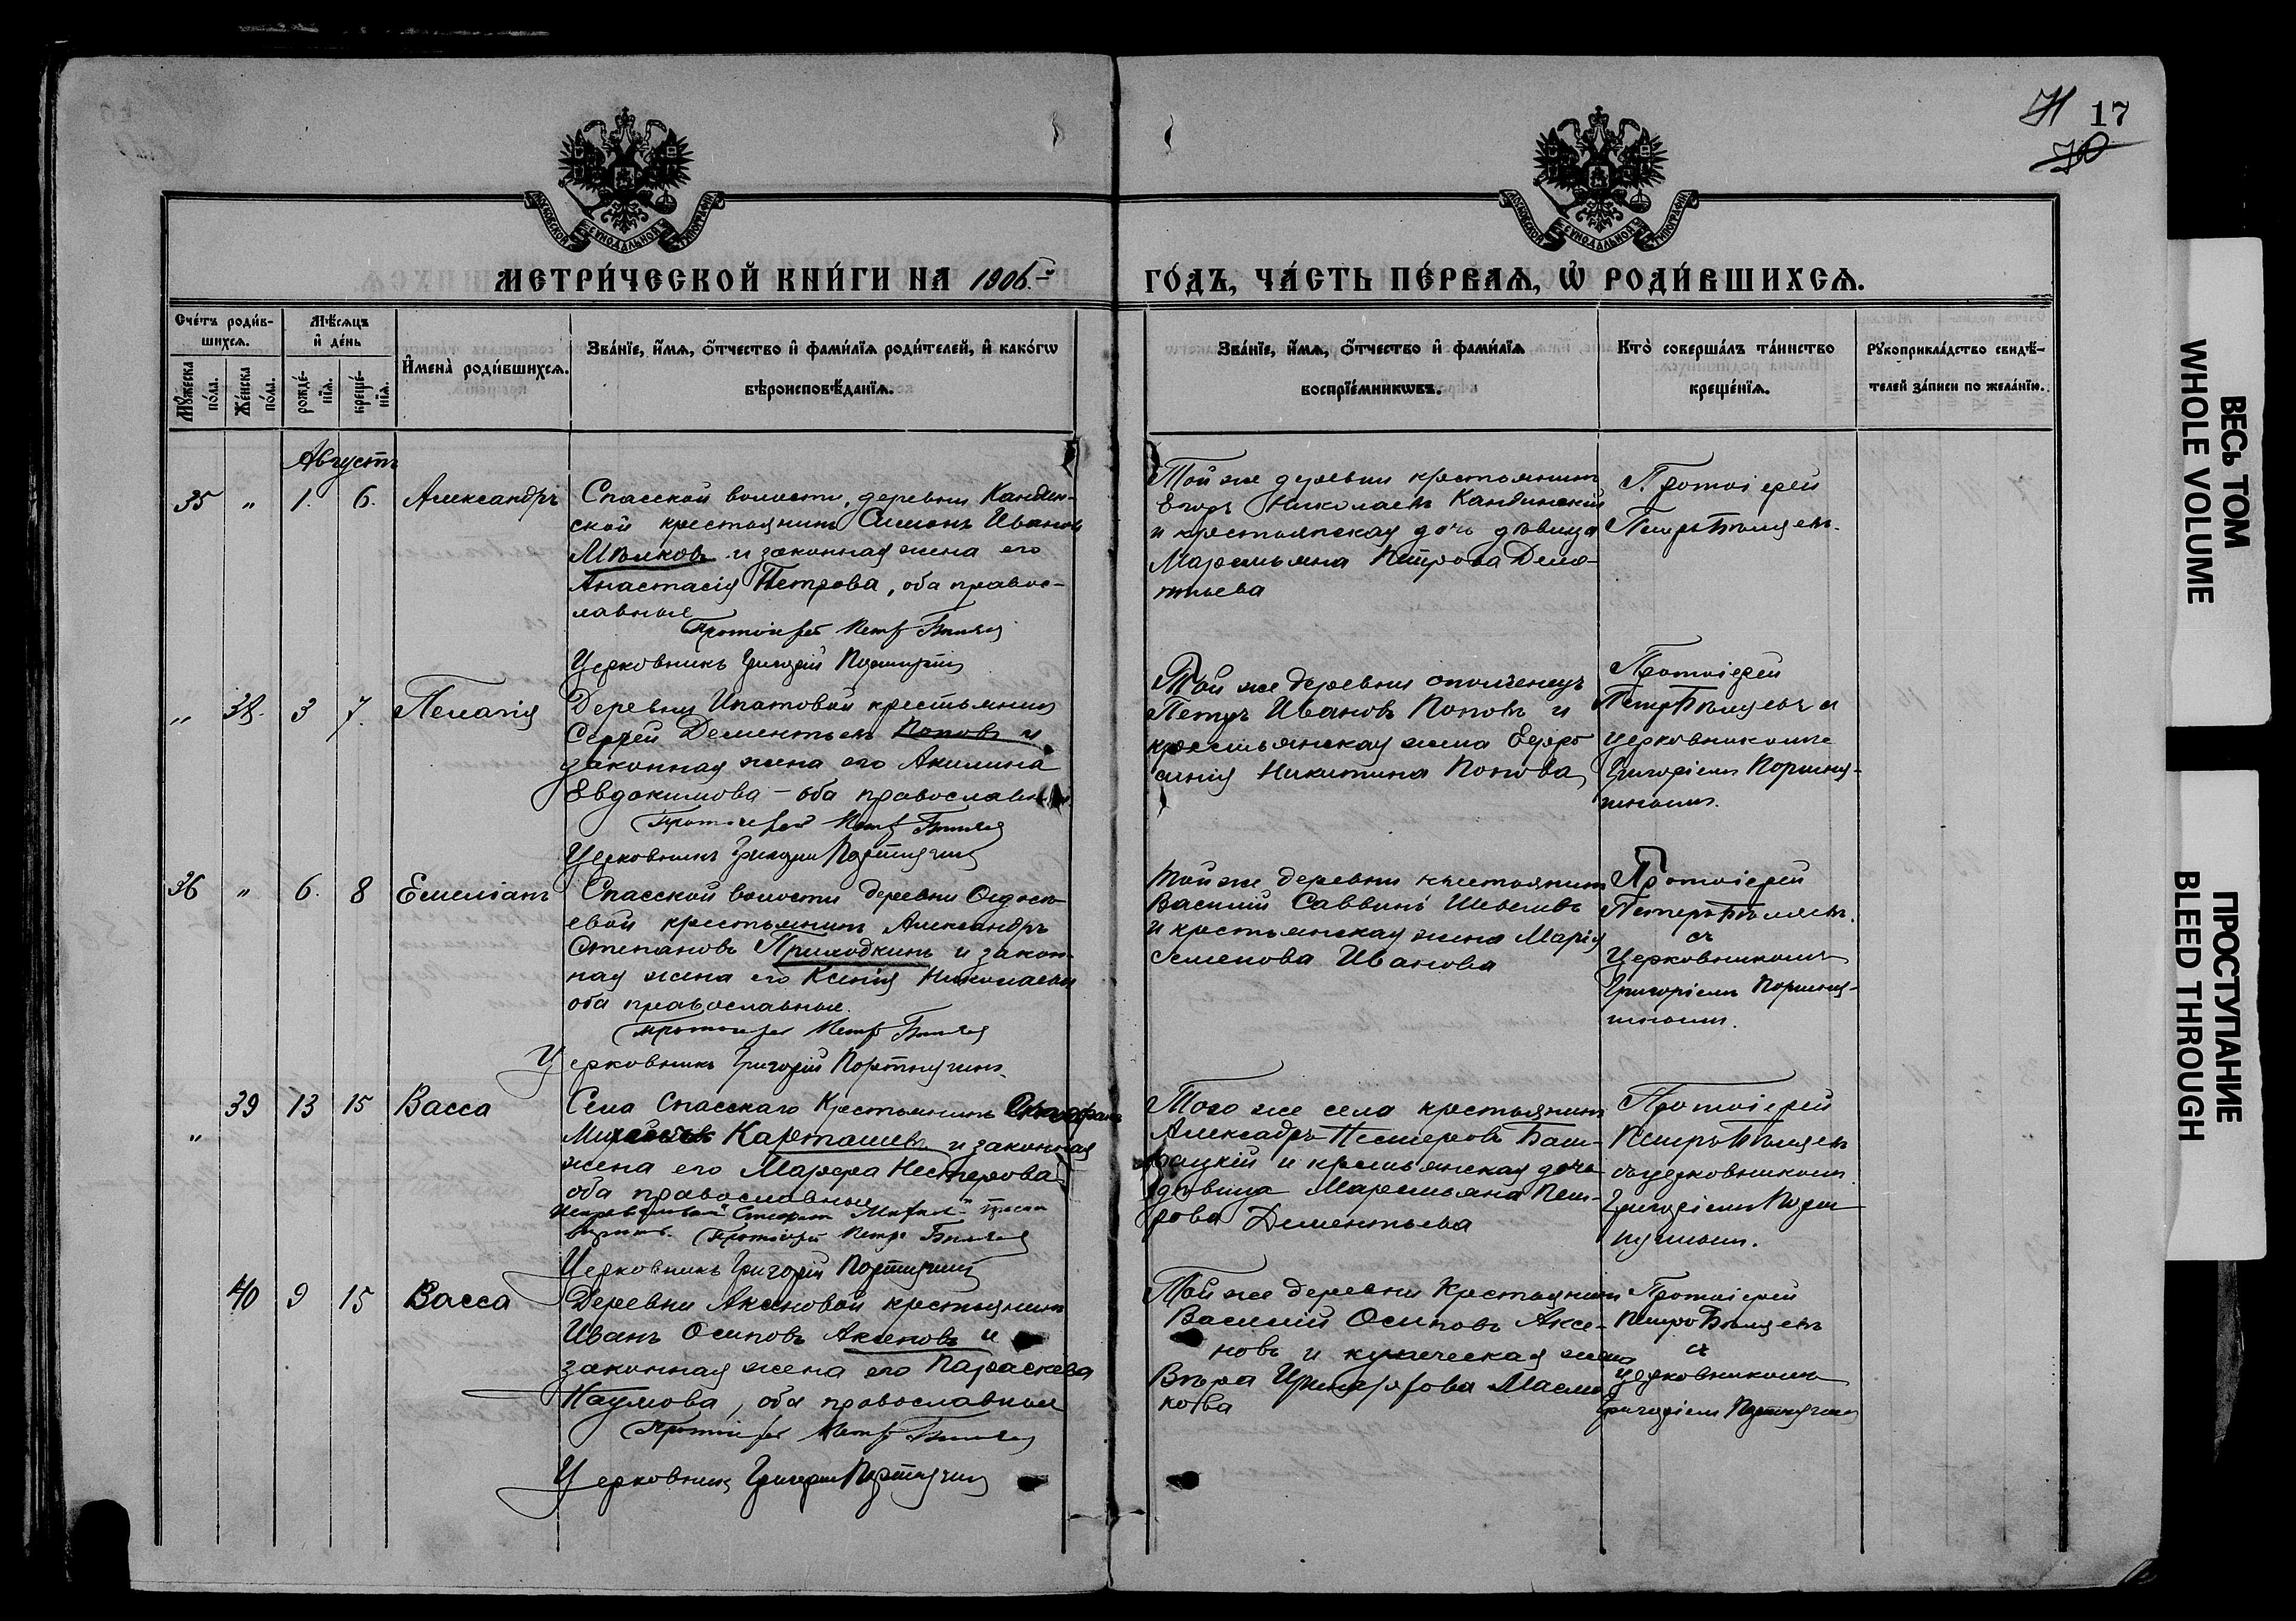 71 17
70
МОСКОВСКОЙ СѴНОДАЛЬНОЙ ТИПОГРАФІИ
МОСКОВСКОЙ СѴНОДАЛЬНОЙ ТИПОГРАФІИ
МЕТРИ́ЧЕСКОЙ КНИ́ГИ НА 1906.й ГО́ДЪ, ЧА́СТЬ ПЕ́РВАѦ, Ѡ҆ РОДИ́ВШИХСѦ.
Сче́тъ роди́в-
шихсѧ.
Мꙋ́жеска по́ла.
Же́нска по́ла.
Мѣ́сѧцъ
и҆ де́нь
рожде́-
нїѧ.
креще́-
нїѧ.
И҆мена̀ роди́вшихсѧ.
Зва́нїе, и҆́мѧ, ѻ҆́тчество и҆ фами́лїѧ роди́телей, и҆ како́гѡ
вѣроисповѣ́данїѧ.
Зва́нїе, и҆́мѧ, ѻ҆́тчество и҆ фами́лїѧ
воспрїе́мникѡвъ.
Кто̀ соверша́лъ та́инство
креще́нїѧ.
Рꙋкоприкла́дство свидѣ́-
телей за́писи по жела́нїю.
Августъ
35 " 1. 6. Александръ
Спасской волости, деревни Кандин-
ской крестьянинъ Симонъ Ивановъ
и законная жена его
Анастасія Петрова, оба правос-
лавные
Протоіерей Петръ Бѣляев
Церковникъ Григорій Портнягинъ
Той же деревни крестьянинъ
Егоръ Николаевъ Кандинскій
и крестьянская дочь дѣвица
Маремьяна Петрова Деме-
нтьева
Протоіерей
Петръ Бѣляевъ.
" 38. 3 7. Пелагія
Деревни Ипатовой крестьянинъ
Сергѣй Дементьевъ Поповъ и
законная жена его Акилина
Евдокимова – оба православные
Протоіерей Петръ Бѣляев
Церковникъ Григорій Портнягинъ
Той же деревни ополченецъ
Петръ Ивановъ Поповъ и
крестьянская жена Евфро
синія Никитина Попова
Протоіерей
Петръ Бѣляевъ съ
церковникомъ
Григоріемъ Портня-
гинымъ.
36 " 6. 8 Емеліанъ
Спасской волости деревни Ѳедось-
евой крестьянинъ Александръ
Степановъ Приходкинъ и закон-
ная жена его Ксенія Николаева
оба православные.
Протоіерей Петръ Бѣляев
Церковникъ Григорій Портнягинъ.
Той же деревни крестьянинъ
Василій Саввинъ Шевелевъ
и крестьянская жена Марія
Семенова Иванова
Протоіерей
Петръ Бѣляевъ.
съ
Церковникомъ
Григоріемъ Портня-
гинымъ.
" 39 13 15 Васса
Села Спасскаго Крестьянинъ
Карташевъ и законная
жена его Марфа Нестерова
оба православные
Протоіерей Петръ Бѣляев
Церковникъ Григорій Портнягинъ
Того же села крестьянинъ
Александръ Нестеровъ Баш-
и крестьянская дочь
дѣвица Маремьяна Пет-
рова Дементьева
Протоіерей
Петръ Бѣляевъ
съ церковникомъ
Григоріемъ Портн
ягинымъ.
40 9 15 Васса
Деревни Аксеновой крестьянинъ
Иванъ Осиповъ Аксеновъ и
законная жена его Параскева
Наумова, оба православные
Протоіерей Петръ Бѣляев
Церковникъ Григорій Портнягинъ
Той же деревни Крестьянинъ
Василій Осиповъ Аксе-
новъ и купеческая жена
Вѣра
Протоіерей
Петръ Бѣляевъ
съ
церковникомъ
Григоріемъ Портнягинымъ
ВЕСЬ ТОМ
WHOLE VOLUME
ПРОСТУПАНИЕ
BLEED THROUGH